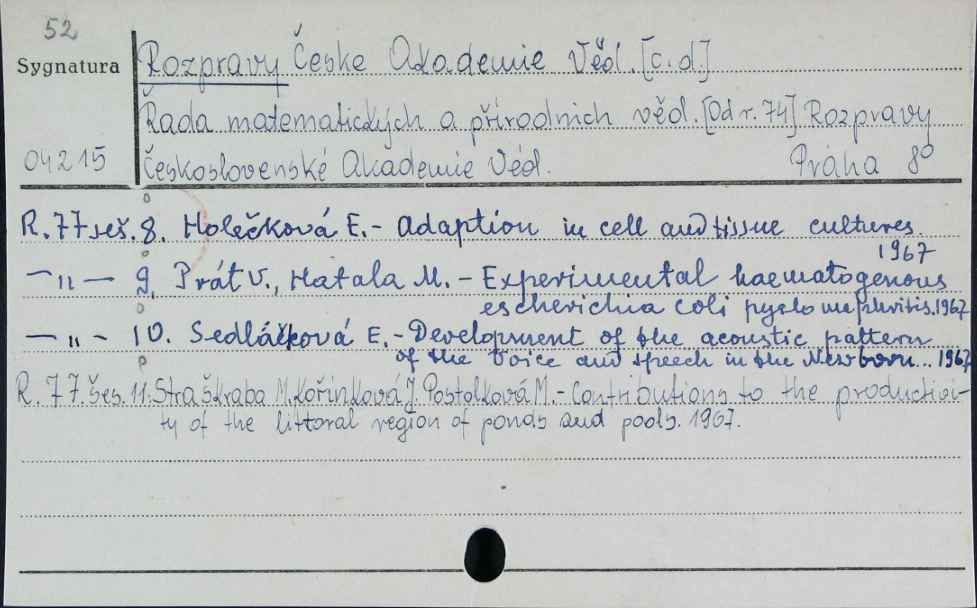 52
Sygnatura
Rozpravy České Akademie Věd. [c.d.]
Řada matematických a přírodnich věd. [Od r. 74] Rozpravy
04215
Československé Akademie Věd. Praha 8°
R. 77 seš. 8. Holečková E. - Adaption in cell and tissue cultures.
1967
— „ — 9. Prát V., Hatala M. - Experimental haematogenous
escherichia coli pyelo nephritis. 1967
— „ — 10. Sedláčková E. - Development of the acoustic pattern
of the voice and speech in the Newborn... 1967
R. 77. Seš. 11. Straškraba M. Kořinková J. Postolková M. - Contributions to the productivi-
ty of the littoral region of ponds and pools. 1967.